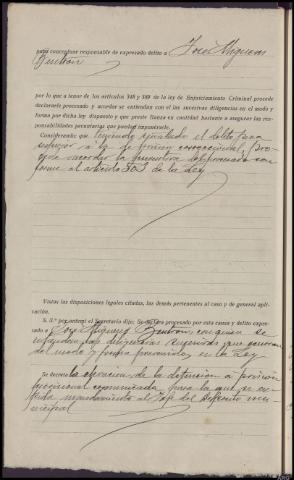 para conceptuar responsable de expresado delito a José Miguens
Bentrón
por lo que a tenor de los artículos 348 y 389 de la ley de Enjuiciamiento Criminal procede
declararle procesado y acordar se entiendan con él las sucesivas diligencias en el modo y
forma que dicha ley dispone y que preste fianza en cantidad bastante a asegurar las res-
ponsabilidades pecuniarias que puedan imponérsele.
Considerando que teniendo señalado el delito pena
superior a la de prisión correccional, pro-
cede acordar la del procesado con
forme al artículo 503 de la Ley
Vistas las disposiciones legales citadas, las demás pertinentes al caso y de general apli-
cación.
S. S.ª por ante mí el Secretario dijo: Se declara procesado por esta causa y delito expre-
sado a José Miguens Bentrón con quien se
entiendan las diligencias sucesivas que
del modo y forma prevenidos en la Ley
Se decreta la elevación de la detención a prisión
provisional comunicada para la que se ex-
pida mandamiento al Jefe del Depósito mu-
nicipal